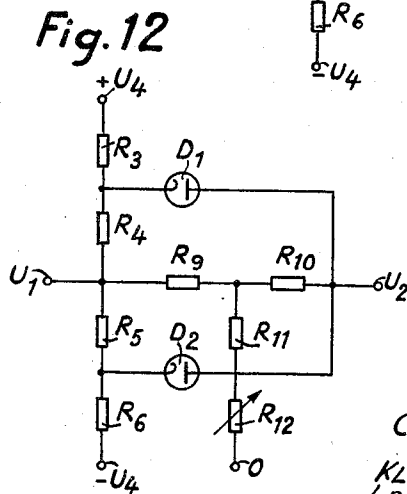 Fig. 12
R6
-U4
+U4
R3
D1
R4
R9
R10
U1
U2
R5
D2
R11
R6
R12
-U4
0
C
KL